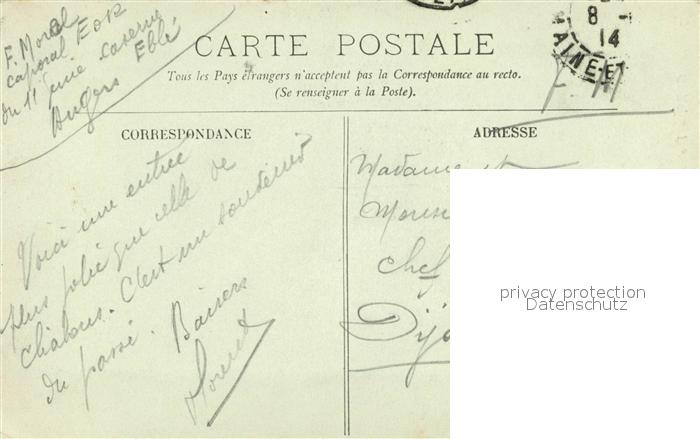 F. Morel
caporal EOR
du 11e génie caserne
Angers Eblé
CARTE POSTALE
Tous les Pays étrangers n'acceptent pas la Correspondance au recto.
(Se renseigner à la Poste).
8 -
14
MAINE-E
F. M
CORRESPONDANCE
ADRESSE
Voici une entrée
plus jolie que celle de
Châlons. C'est un souvenir
du passé. Baisers
Madame et
Monsi
chef
Dijo
privacy protection
Datenschutz